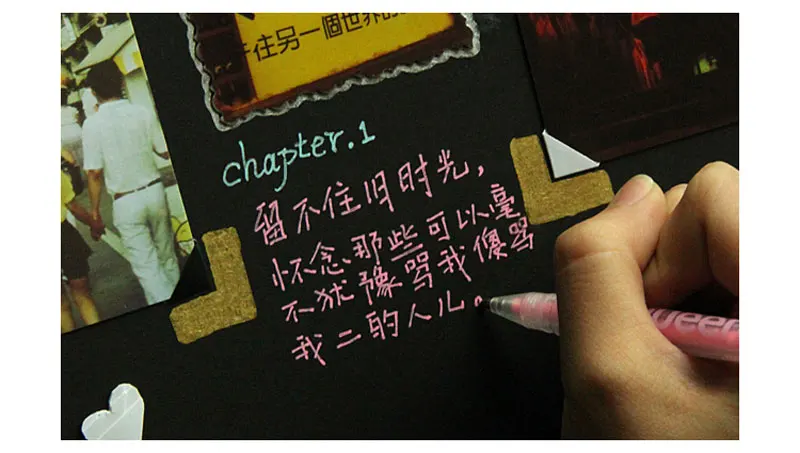 住另一個世界的
chapter.1
留不住旧时光,
怀念那些可以毫
不犹豫骂我傻骂
我二的人儿。
ueen